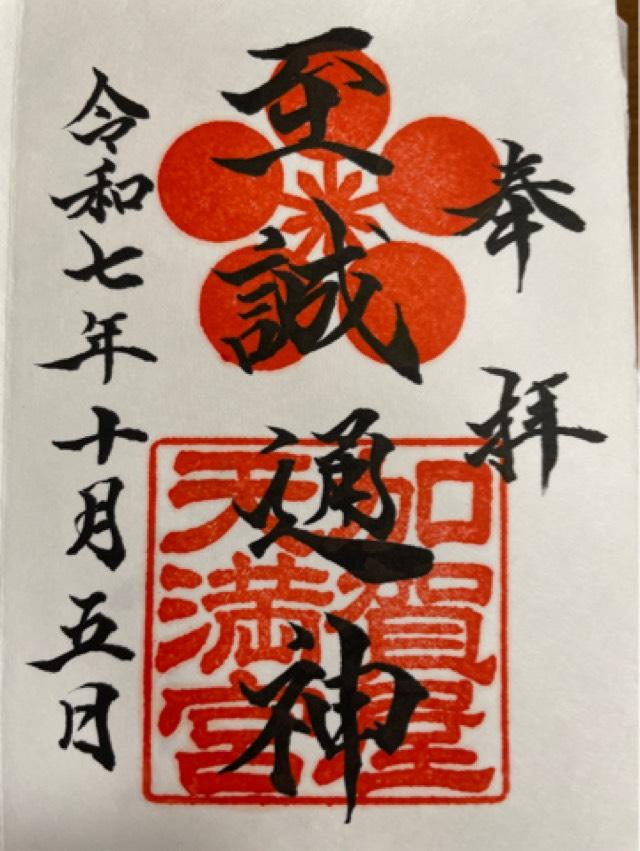 奉拝
至誠通神
加賀屋
天満宮
令和七年十月五日